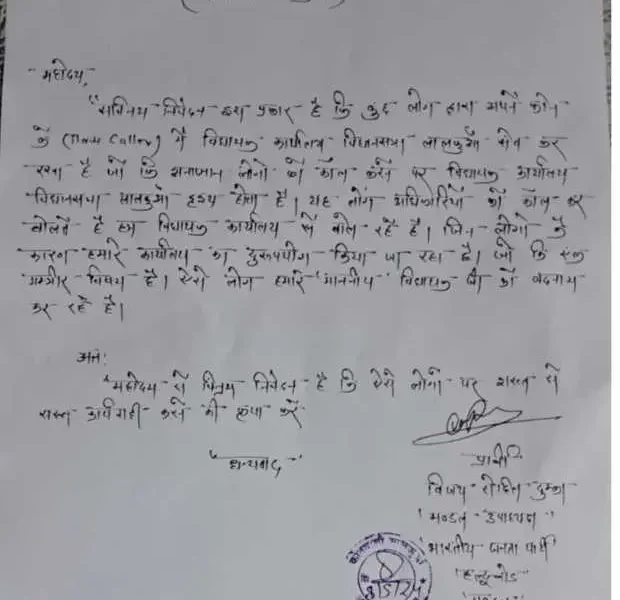 महोदय,
"सविनय निवेदन इस प्रकार है कि कुछ लोग द्वारा अपने फोन
के (True Caller) में विधायक कार्यालय विधानसभा लालकुआँ सेव कर
रखा है जो कि अनजान लोगो को कॉल करने पर विधायक कार्यालय
विधानसभा लालकुआँ दृश्य होता है। यह लोग अधिकारियों को कॉल कर
बोलते है हम विधायक कार्यालय से बोल रहे है। जिन लोगो के
कारण हमारे कार्यालय का दुरूपयोग किया जा रहा है। जो कि एक
गम्भीर विषय है। ऐसे लोग हमारे माननीय विधायक जी को बदनाम
कर रहे है।
अतः
"महोदय से विनम्र निवेदन है कि ऐसे लोगों पर सख्त से
सख्त कार्यवाही करने की कृपा करें
"धन्यवाद"
प्रार्थी
विजय
मण्डल उपाध्यक्ष
भारतीय जनता पार्टी
हल्दूचौड़